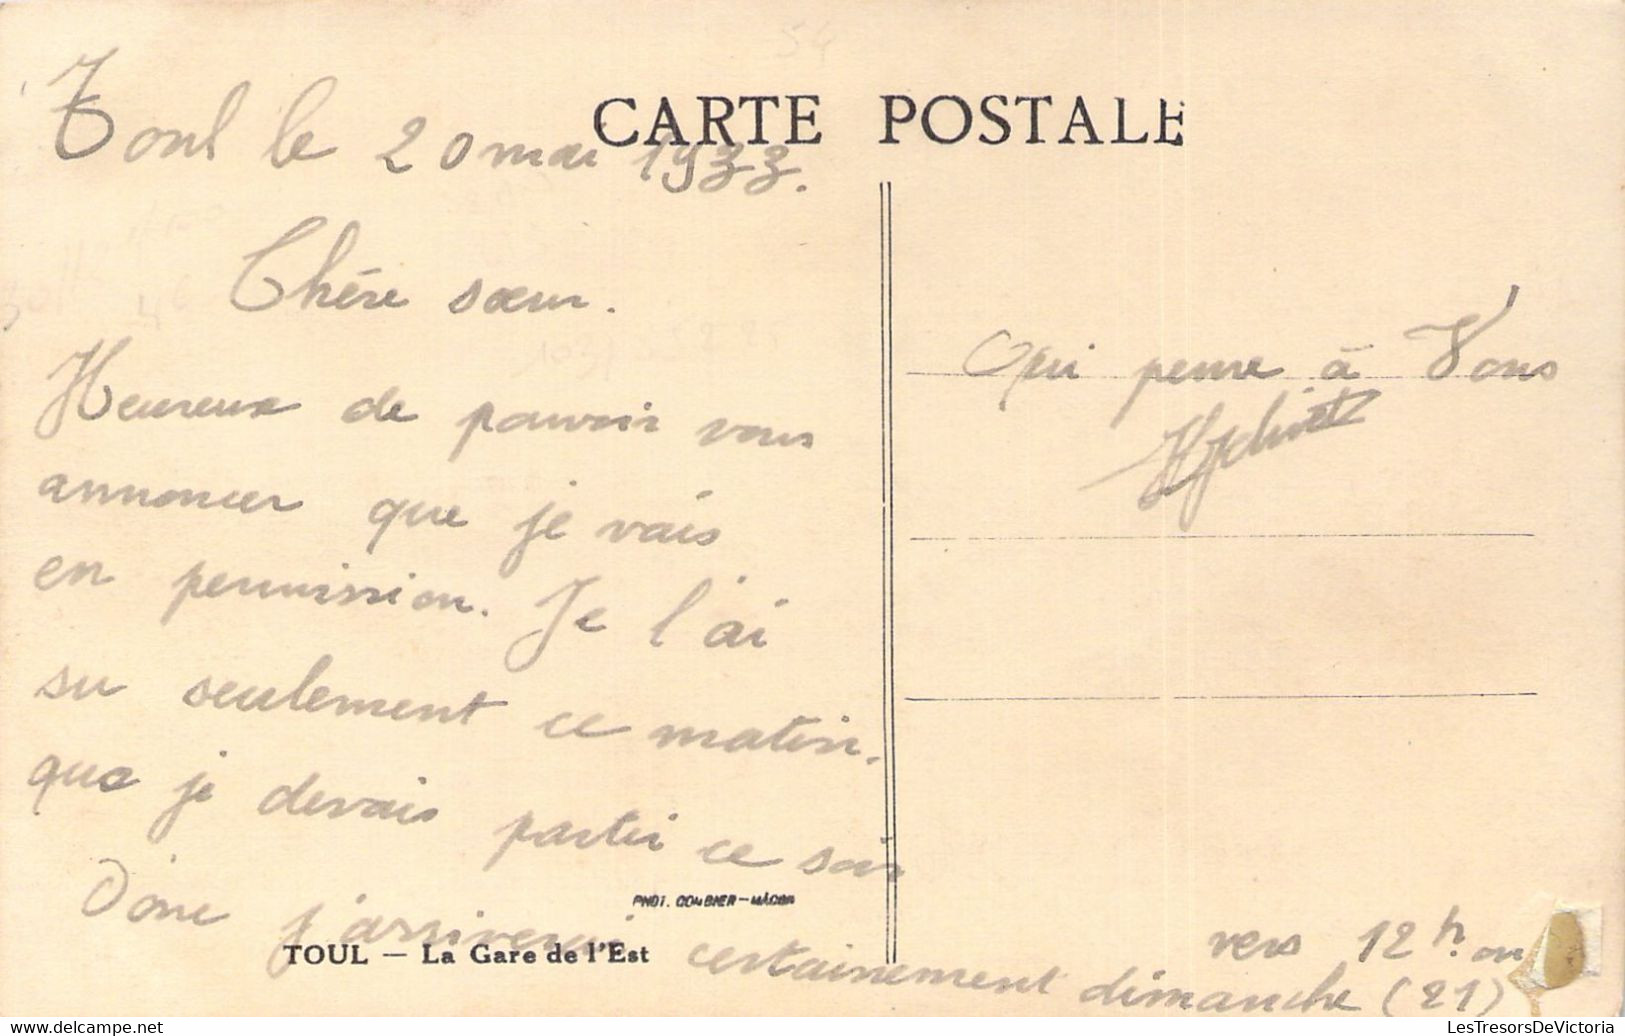 CARTE POSTALE
Toul le 20 mai 1933.
Chére sœur.
Heureux de pouvoir vous
annoncer que je vais
en permission. Je l'ai
su seulement ce matin.
que je devais partir ce soir
Donc j'arriverai certainement dimanche (21)
vers 12 h. ou
Qui pense à Vous
PHOT. COMBIER - MÂCON
TOUL — La Gare de l'Est
LesTresorsDeVictoria
www.delcampe.net